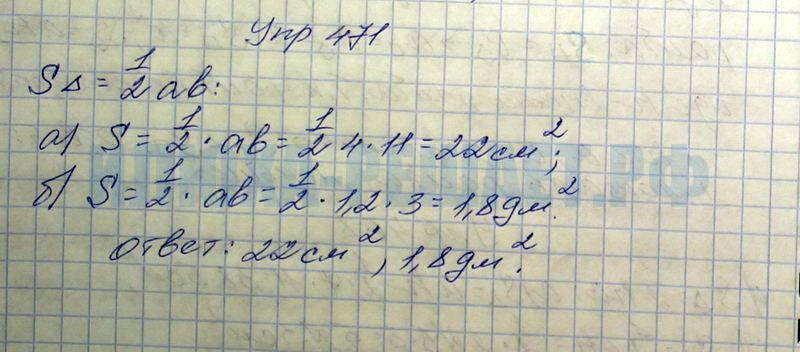 Упр 471
S△ = 1/2 ав:
а) S = 1/2 · ав = 1/2 4 · 11 = 22 см²;
б) S = 1/2 · ав = 1/2 · 1,2 · 3 = 1,8 дм².
Ответ: 22 см², 1,8 дм².